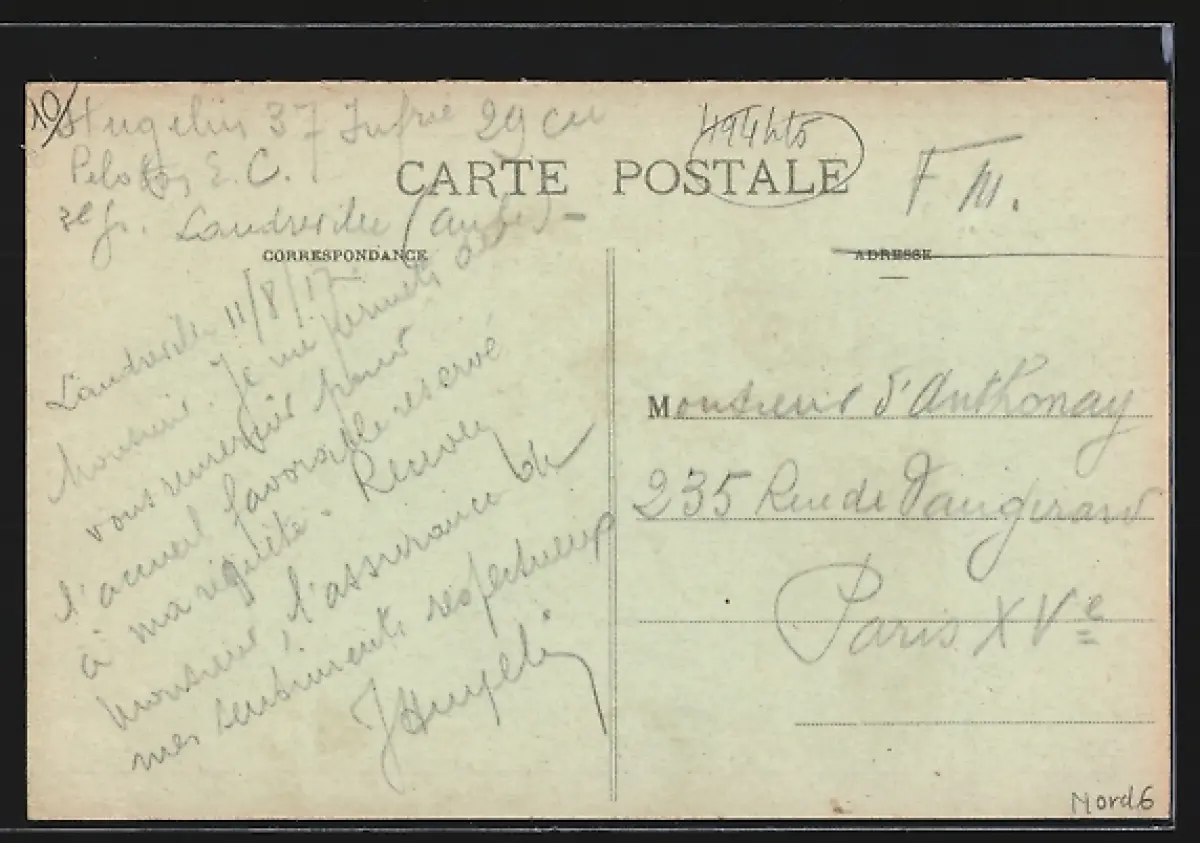 10/
Hugelin 37 Infrie 29 cie
Peloton E. C.
Landreville (Aube) -
494 465
CARTE POSTALE
F M.
CORRESPONDANCE
ADRESSE
Landreville 11/8/17
Monsieur. Je me permets de
vous remercier pour
l'accueil favorable réservé
à ma requête. Recevez
Monsieur, l'assurance de
mes sentiments respectueux
JHugelin
Monsieur d'Anthonay
235 Rue de Vaugirard
Paris XVe
Nord6